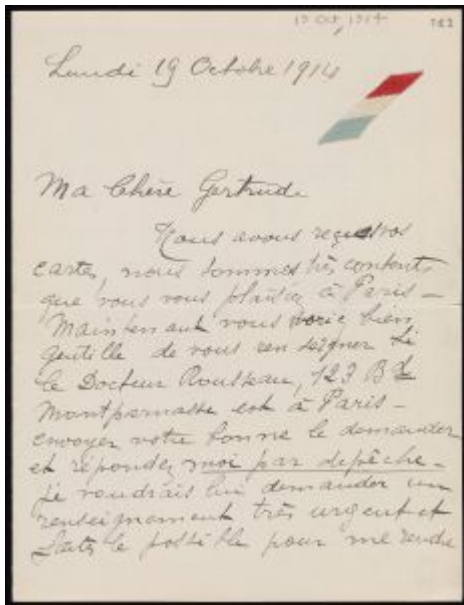 19 Oct, 1914
Lundi 19 Octobre 1914
Ma Chère Gertrude
Nous avons reçues vos
cartes, nous sommes très contents
que vous vous plaisiez à Paris —
Maintenant vous bien
gentille de vous renseigner si
le Docteur Rousseau, 123 Bd
Montparnasse est à Paris —
envoyer votre bonne le demander
et répondez moi par depêche —
je voudrais lui demander un
renseignement très urgent et
faites le possible pour me rendre